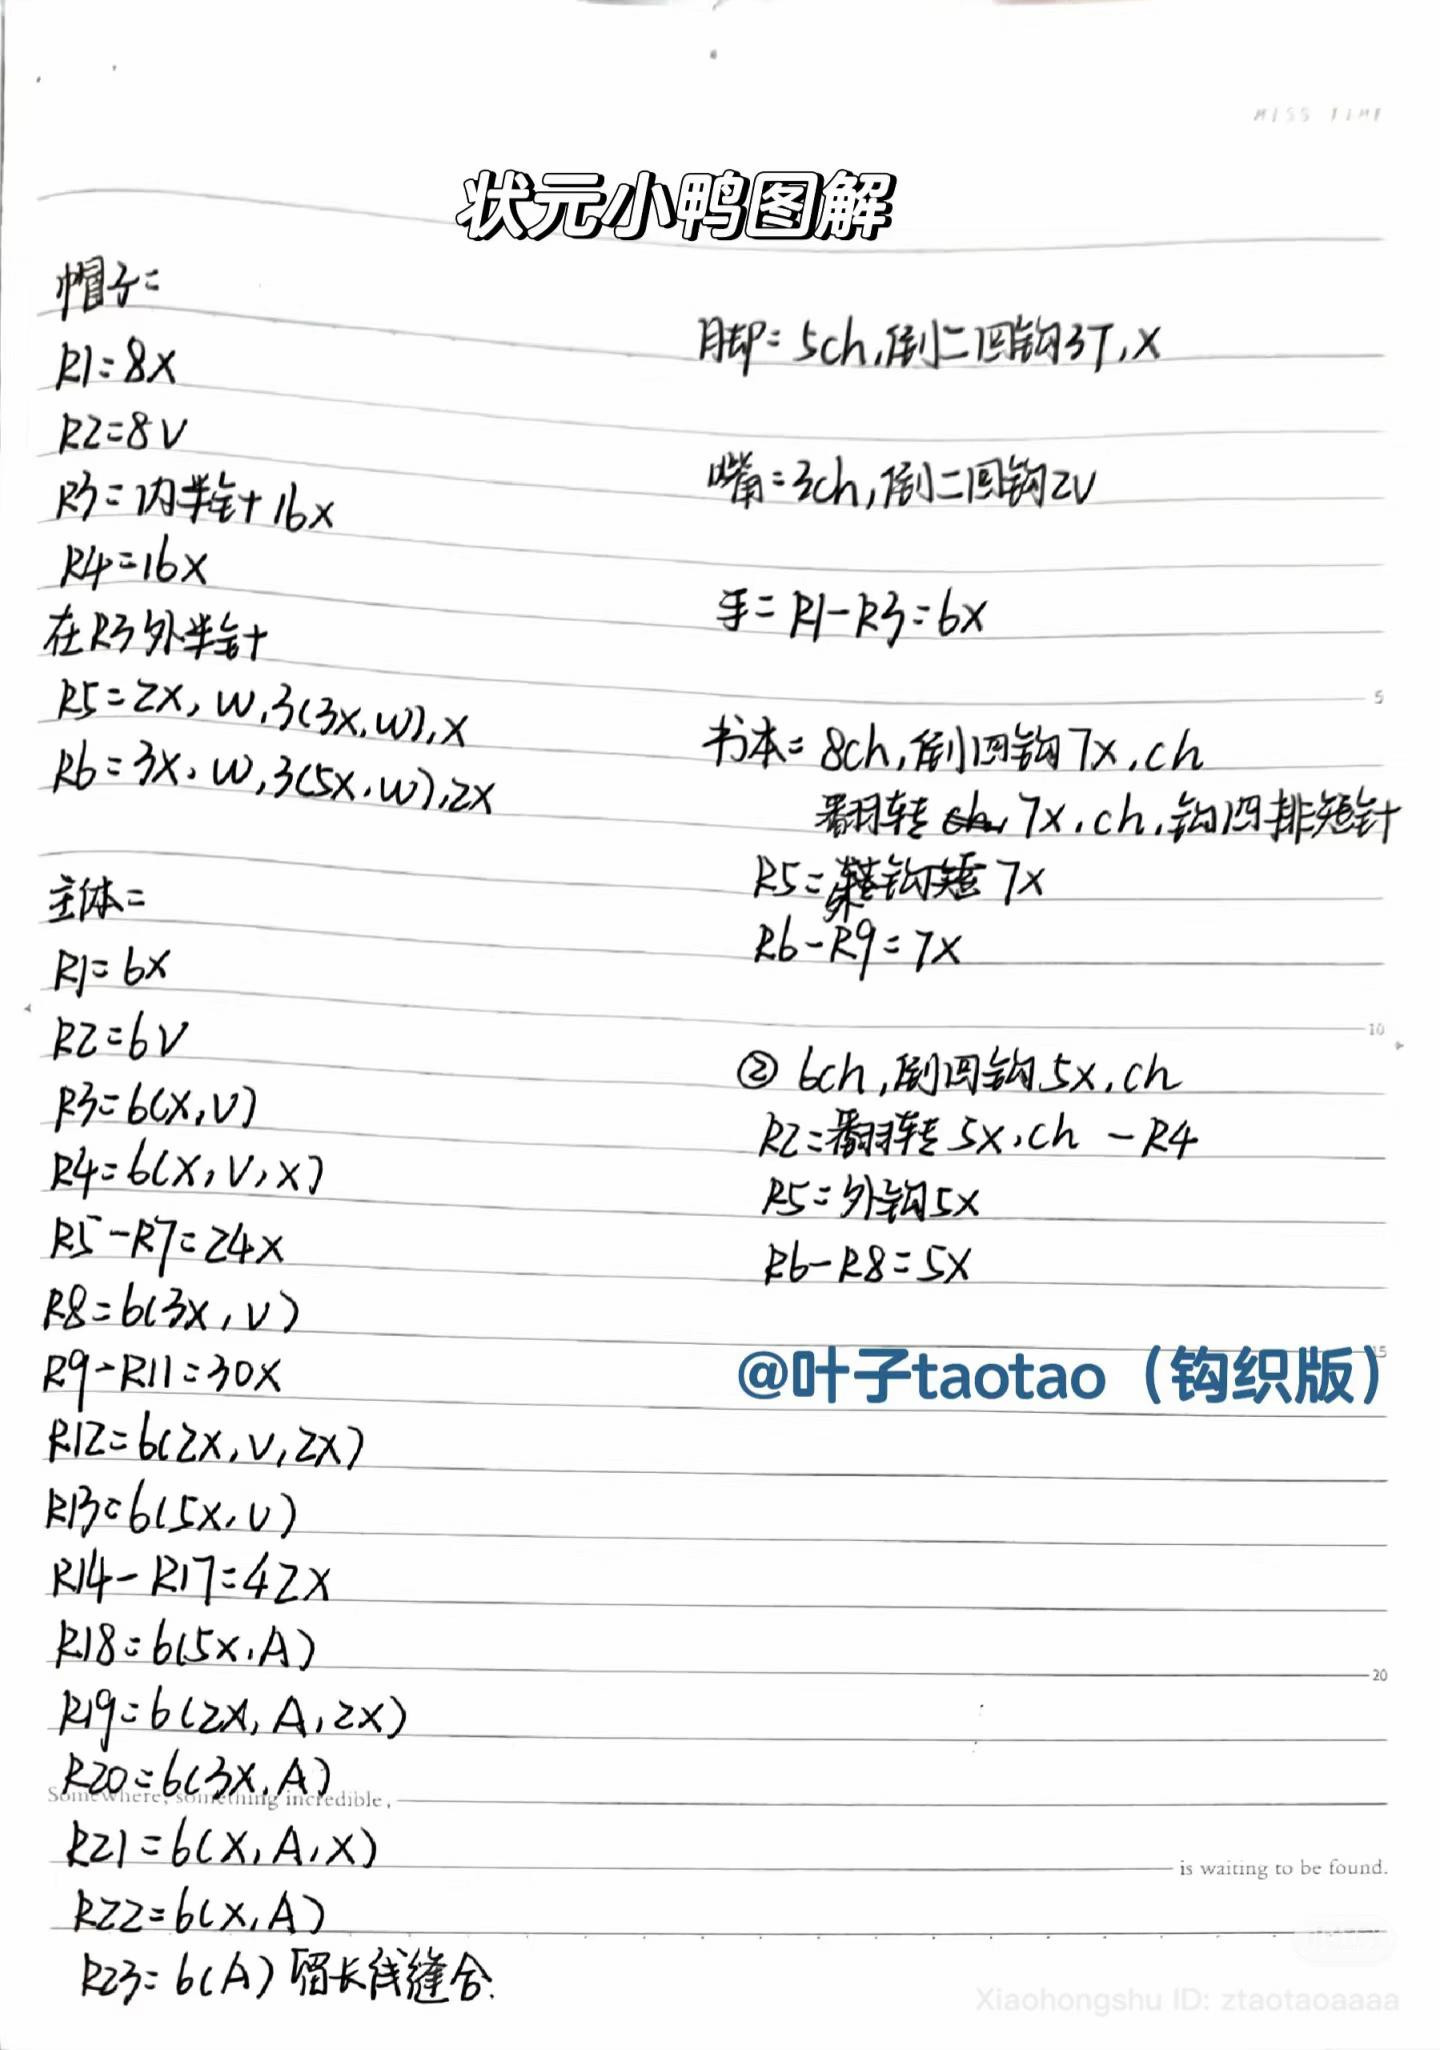 MISS TIME
状元小鸭图解
帽子=
R1=8X
R2=8V
R3=内半针16X
R4=16X
在R3外半针
R5=2X, W,3(3X,W),X
R6=3X,W,3(5X,W),2X
主体=
R1=6X
R2=6V
R3=6(X,V)
R4=6(X,V,X)
R5-R7=24X
R8=6(3X,V)
R9-R11=30X
R12=6(2X,V,2X)
R13=6(5X,V)
R14-R17=42X
R18=6(5X,A)
R19=6(2X,A,2X)
R20=6(3X,A)
R21=6(X,A,X)
R22=6(X,A)
R23=6(A)留长线缝合.
脚=5ch,倒二回钩3T,X
嘴=3ch,倒二回钩2V
手=R1-R3=6X
书本=8ch,倒回钩7X,ch
翻转 7X,ch,钩四排短针
R5=外钩短7X
R6-R9=7X
② 6ch,倒回钩5X,ch
R2=翻转5X,ch -R4
R5=外钩5X
R6-R8=5X
@叶子taotao（钩织版）
5
10
15
20
Somewhere, something incredible,
is waiting to be found.
Xiaohongshu ID: ztaotaoaaaa